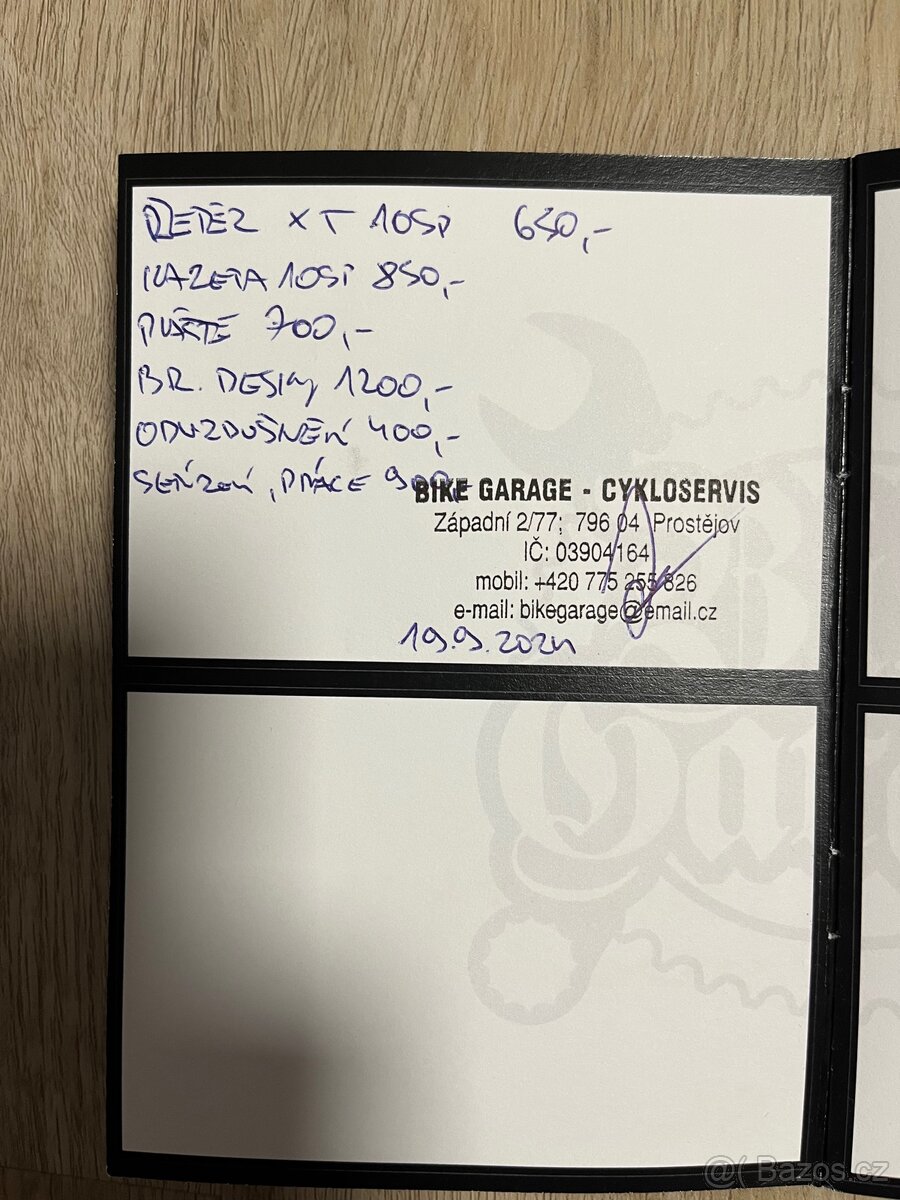 ŘETĚZ XT 10SP 650,-
KAZETA 10SP 850,-
PLÁŠTĚ 700,-
BR. DESKY 1200,-
ODVZDUŠNĚNÍ 400,-
SEŘÍZENÍ, PRÁCE 900,-
BIKE GARAGE - CYKLOSERVIS
Západní 2/77; 796 04 Prostějov
IČ: 03904164
mobil: +420 775 255 826
e-mail: bikegarage@email.cz
19.9.2024
Bazos.cz